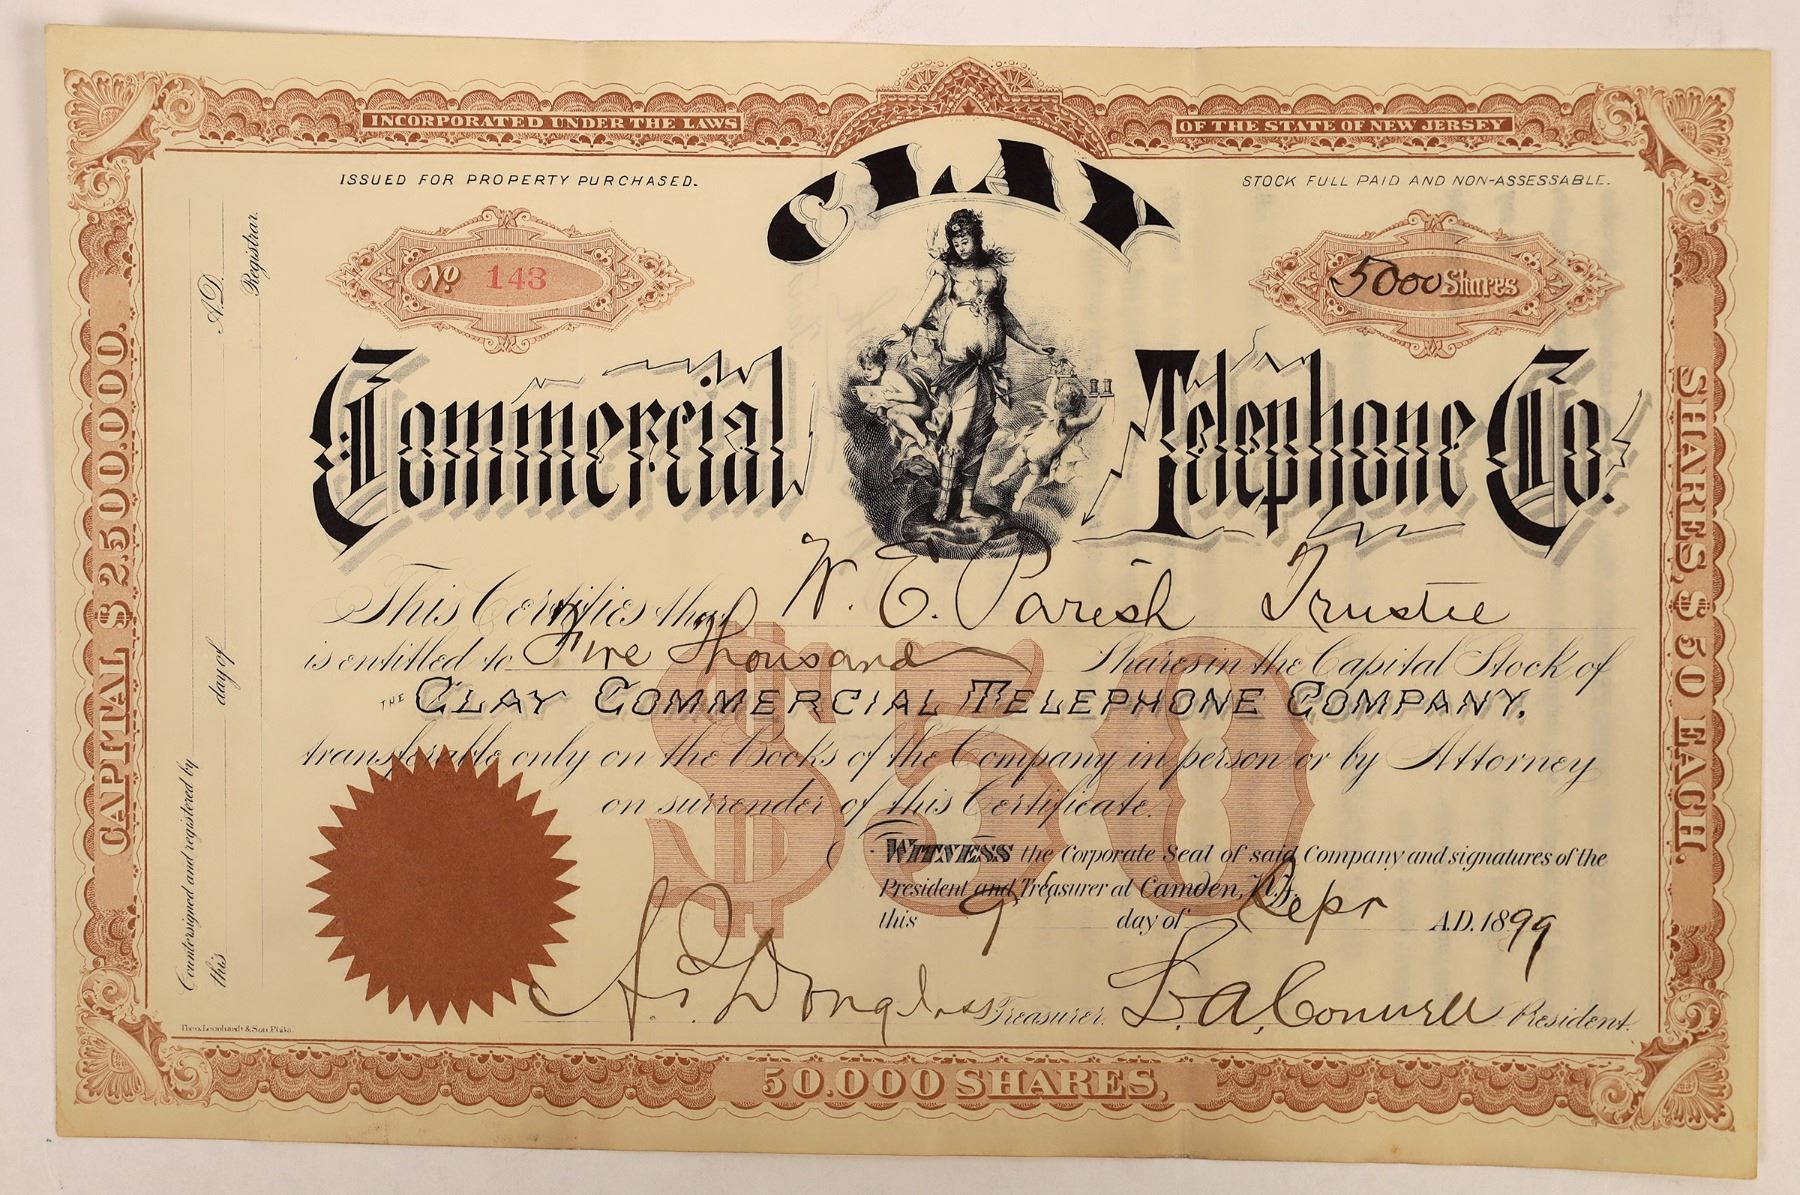 INCORPORATED UNDER THE LAWS OF THE STATE OF NEW JERSEY
ISSUED FOR PROPERTY PURCHASED.
STOCK FULL PAID AND NON-ASSESSABLE.
CLAY
No 143
5000 Shares
Commercial Telephone Co.
This Certifies that W. E. Parish Trustee
is entitled to Five Thousand Shares in the Capital Stock of
THE CLAY COMMERCIAL TELEPHONE COMPANY,
transferable only on the Books of the Company in person or by Attorney
on surrender of this Certificate.
$50
WITNESS the Corporate Seal of said Company and signatures of the
President and Treasurer at Camden, N.J.,
this 9 day of Sepr A.D. 1899
A. P. Douglass Treasurer. L. A. Connell President.
Theo. Leonhardt & Son, Phila.
50.000 SHARES,
CAPITAL $2.500.000.
SHARES, $50 EACH.
Countersigned and registered by
this day of A.D.
Registrar.